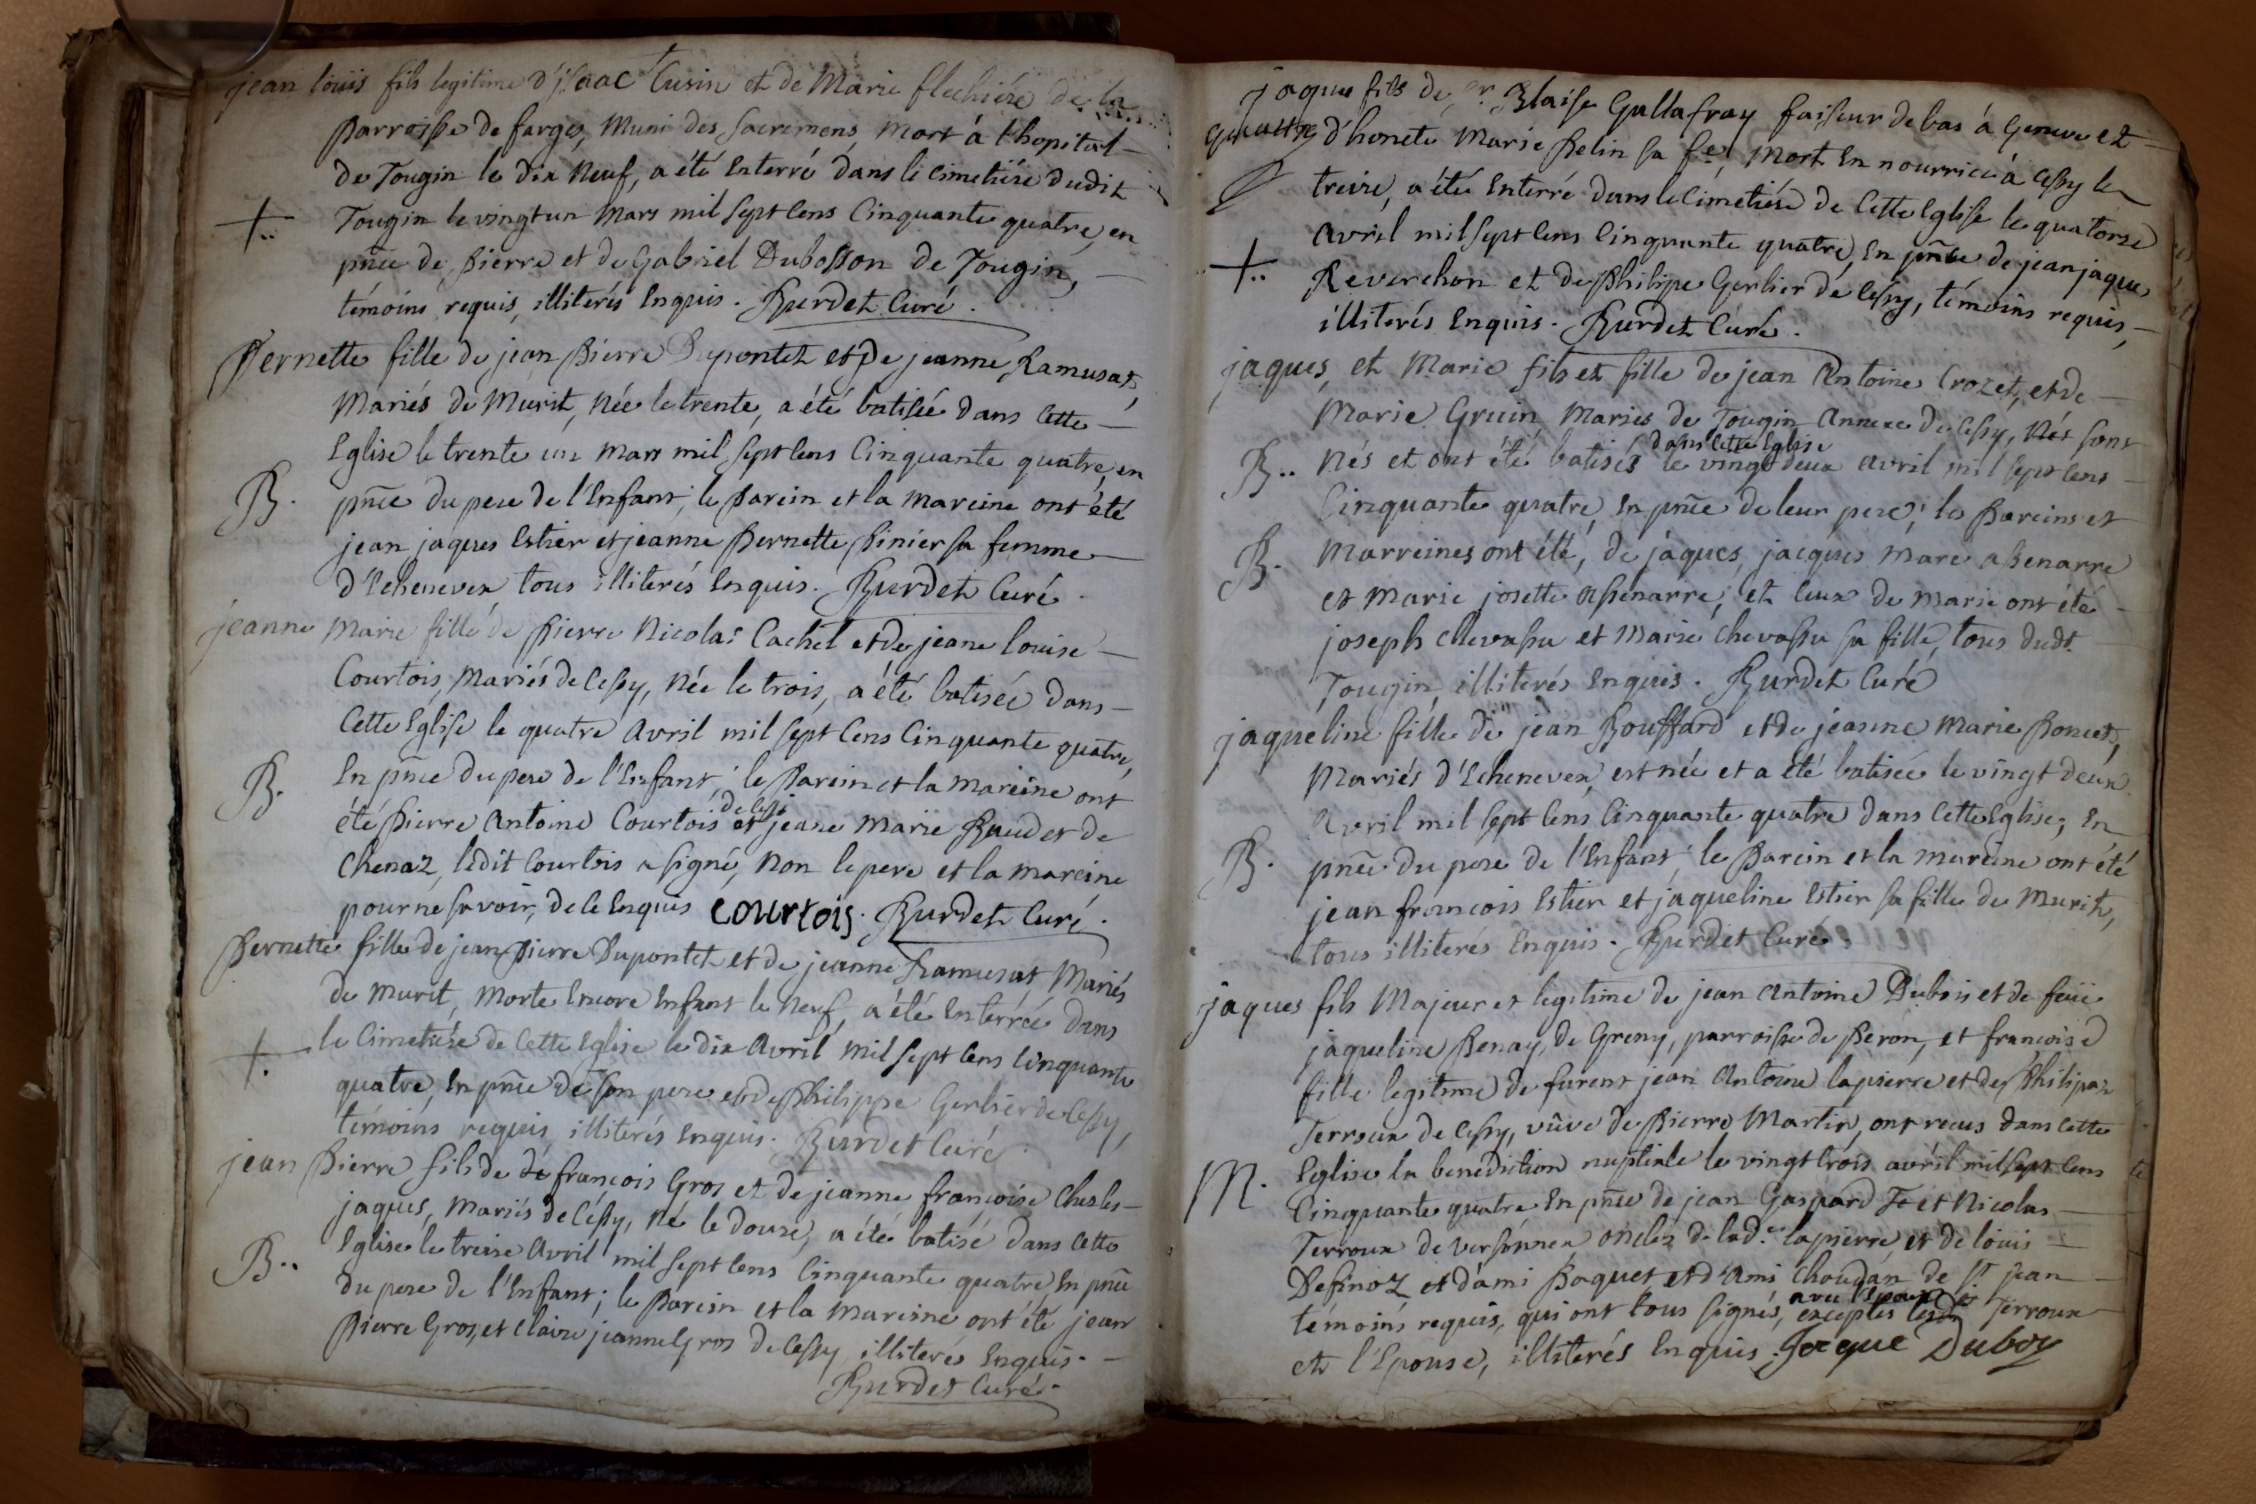 jean loüis fils legitime d'isaac Cusin et de Marie flechiére de la
parroisse de farges, Muni des sacremens, mort à l'hopital
de Tougin le dix Neuf, a été Enterré dans le cimetiére dudit
+.. Tougin le vingt un Mars mil sept Cens Cinquante quatre, en
pñce de pierre et de Gabriel Dubosson de Tougin,
témoins requis, illiterés Enquis. Burdet Curé.
Pernette fille de jean pierre Dupontet et de jeanne Ramusat,
Mariés de Murit, Née le trente, a été batisée dans Cette
Eglise le trente un Mars mil sept Cens Cinquante quatre, en
B. pñce du pere de l'Enfant; le parein et la mareine ont été
jean jaques Estier et jeanne pernette pinier sa femme
d'Echenevex tous illiterés Enquis. Burdet Curé.
jeanne Marie fille de pierre Nicolas Cachet et de jeane louise
Courtois, Mariés de Cessy, Née le trois, a été batisée dans
Cette Eglise le quatre Avril mil sept Cens Cinquante quatre,
B. En pñce du pere de l'Enfant; le parein et la mareine ont
été pierre Antoine Courtois de Cessy et jeane Marie Baud et de
Chenaz, ledit Courtois a signé, Non le pere et la mareine
pour ne savoir, de ce Enquis courtois. Burdet Curé.
Pernette fille de jean pierre Dupontet et de jeanne Ramusat Mariés
de Murit, Morte Encore Enfant le Neuf, a été Enterrée dans
+. le Cimetiére de Cette Eglise le dix Avril mil sept Cens Cinquante
quatre, En pñce de son pere et de philippe Gerlier de Cessy,
témoins requis illiterés Enquis. Burdet Curé
jean pierre fils de de francois Gros et de jeanne francoise Charles
jaques, Mariés de Céssy, Né le douze, a été batisé dans Cette
B.. Eglise le treize Avril mil sept Cens Cinquante quatre En pñce
du pere de l'Enfant; le parein et la Mareine ont été jean
pierre Gros, et Claire jeanne Gros de Cessy illiterés Enquis.
Burdet Curé.
jaque fils de Sr. Blaise Gallafray faiseur de bas à Geneve et
d'honete Marie Belin sa fe., Mort En nourrice à Cessy le
treize, a été Enterré dans le Cimetiére de Cette Eglise le quatorze
+.. Avril mil sept Cens Cinquante quatre, En pñce de jean jaques
Reverchon et de philipe Gerlier de Cessy, témoins requis,
illiterés Enquis. Burdet Curé.
jaques, et Marie fils et fille de jean Antoine Crozet, et de
Marie Gruin Mariés de Tougin Annexe de Cessy, Nés sont
B.. Nés et ont été batisés dans Cette Eglise le vingt deux avril mil sept Cens
Cinquante quatre, En pñce de leur pere; les pareins et
B. Marreines ont été, de jaques, jacques Marc abenarre
et Marie josette abenarre, et Ceux de Marie ont été
joseph Chevassu et Marie Chevassu sa fille, tous dudt.
Tougin, illiterés Enquis. Burdet Curé
jaqueline fille de jean Bouffard et de jeanne Marie Poncet,
Mariés d'Echenevex, est née et a été batisée le vingt deux
Avril mil sept Cens Cinquante quatre dans Cette Eglise; En
B. pñce du pere de l'Enfant; le parein et la mareine ont été
jean francois Estier et jaqueline Estier sa fille de Murit,
tous illiterés Enquis. Burdet Curé.
jaques fils Majeur et legitime de jean Antoine Dubois et de feüe
jaqueline Benay, de Greny, parroisse de Peron, et francoise
fille legitime de furent jean Antoine lapierre et de philipaz
Terroux de Cessy, vûve de Pierre Martin, ont recus dans Cette
M. Eglise la benediction nuptiale le vingt trois avril mil sept Cens
Cinquante quatre En pñce de jean Gaspard Te et Nicolas
Terroux de Versonnex, oncles de lade. lapierre, et de loüis
Definoz et d'ami Paquet et d'Ami Choudan de St. jean
témoins requis, qui ont tous signés, avec l'Epoux exceptés lesdt Terroux
et l'Epouse, illiterés Enquis. Jacque Duboy